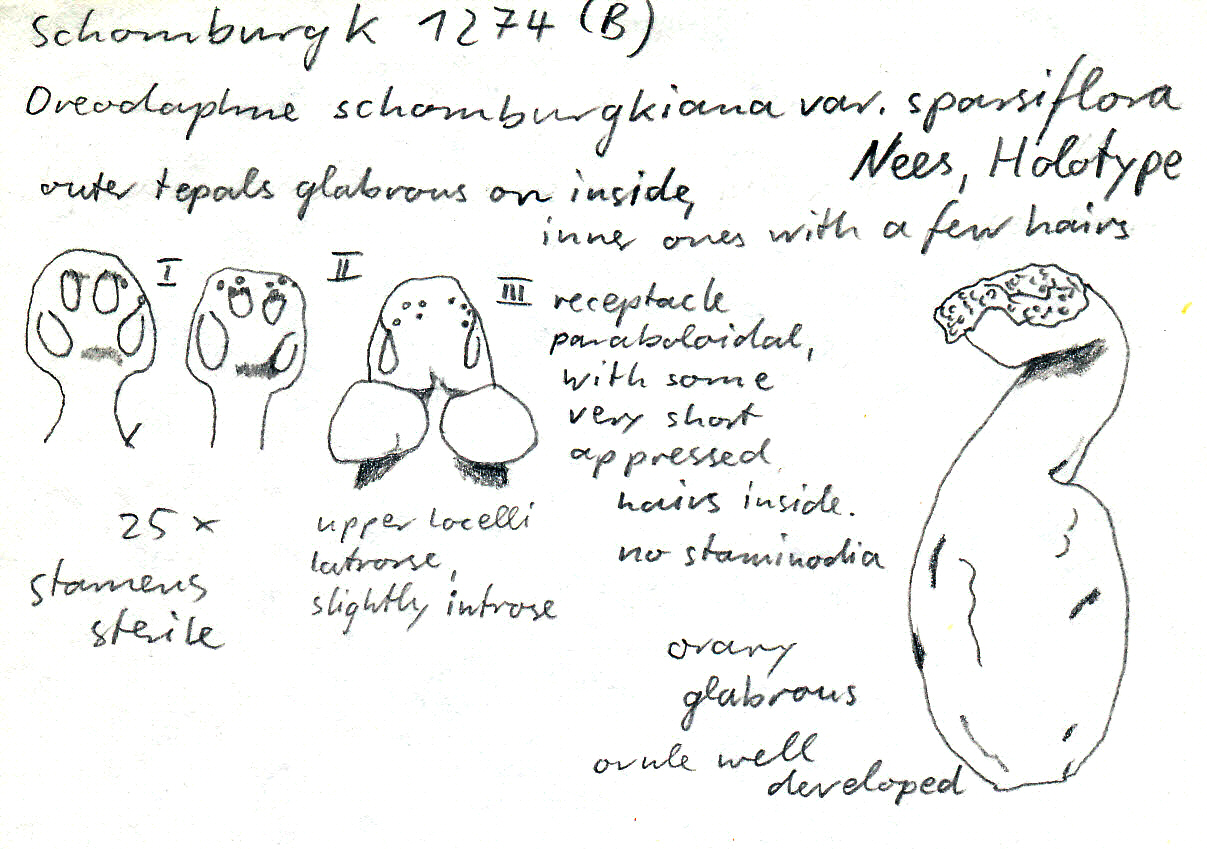 Schomburgk 1274 (B)
Oreodaphne schomburgkiana var. sparsiflora
Nees, Holotype
outer tepals glabrous on inside,
inner ones with a few hairs
I
II
III
receptacle
paraboloidal,
with some
very short
appressed
hairs inside.
no staminodia
25 x
stamens
sterile
upper locelli
latrorse,
slightly introse
ovary
glabrous
ovule well
developed